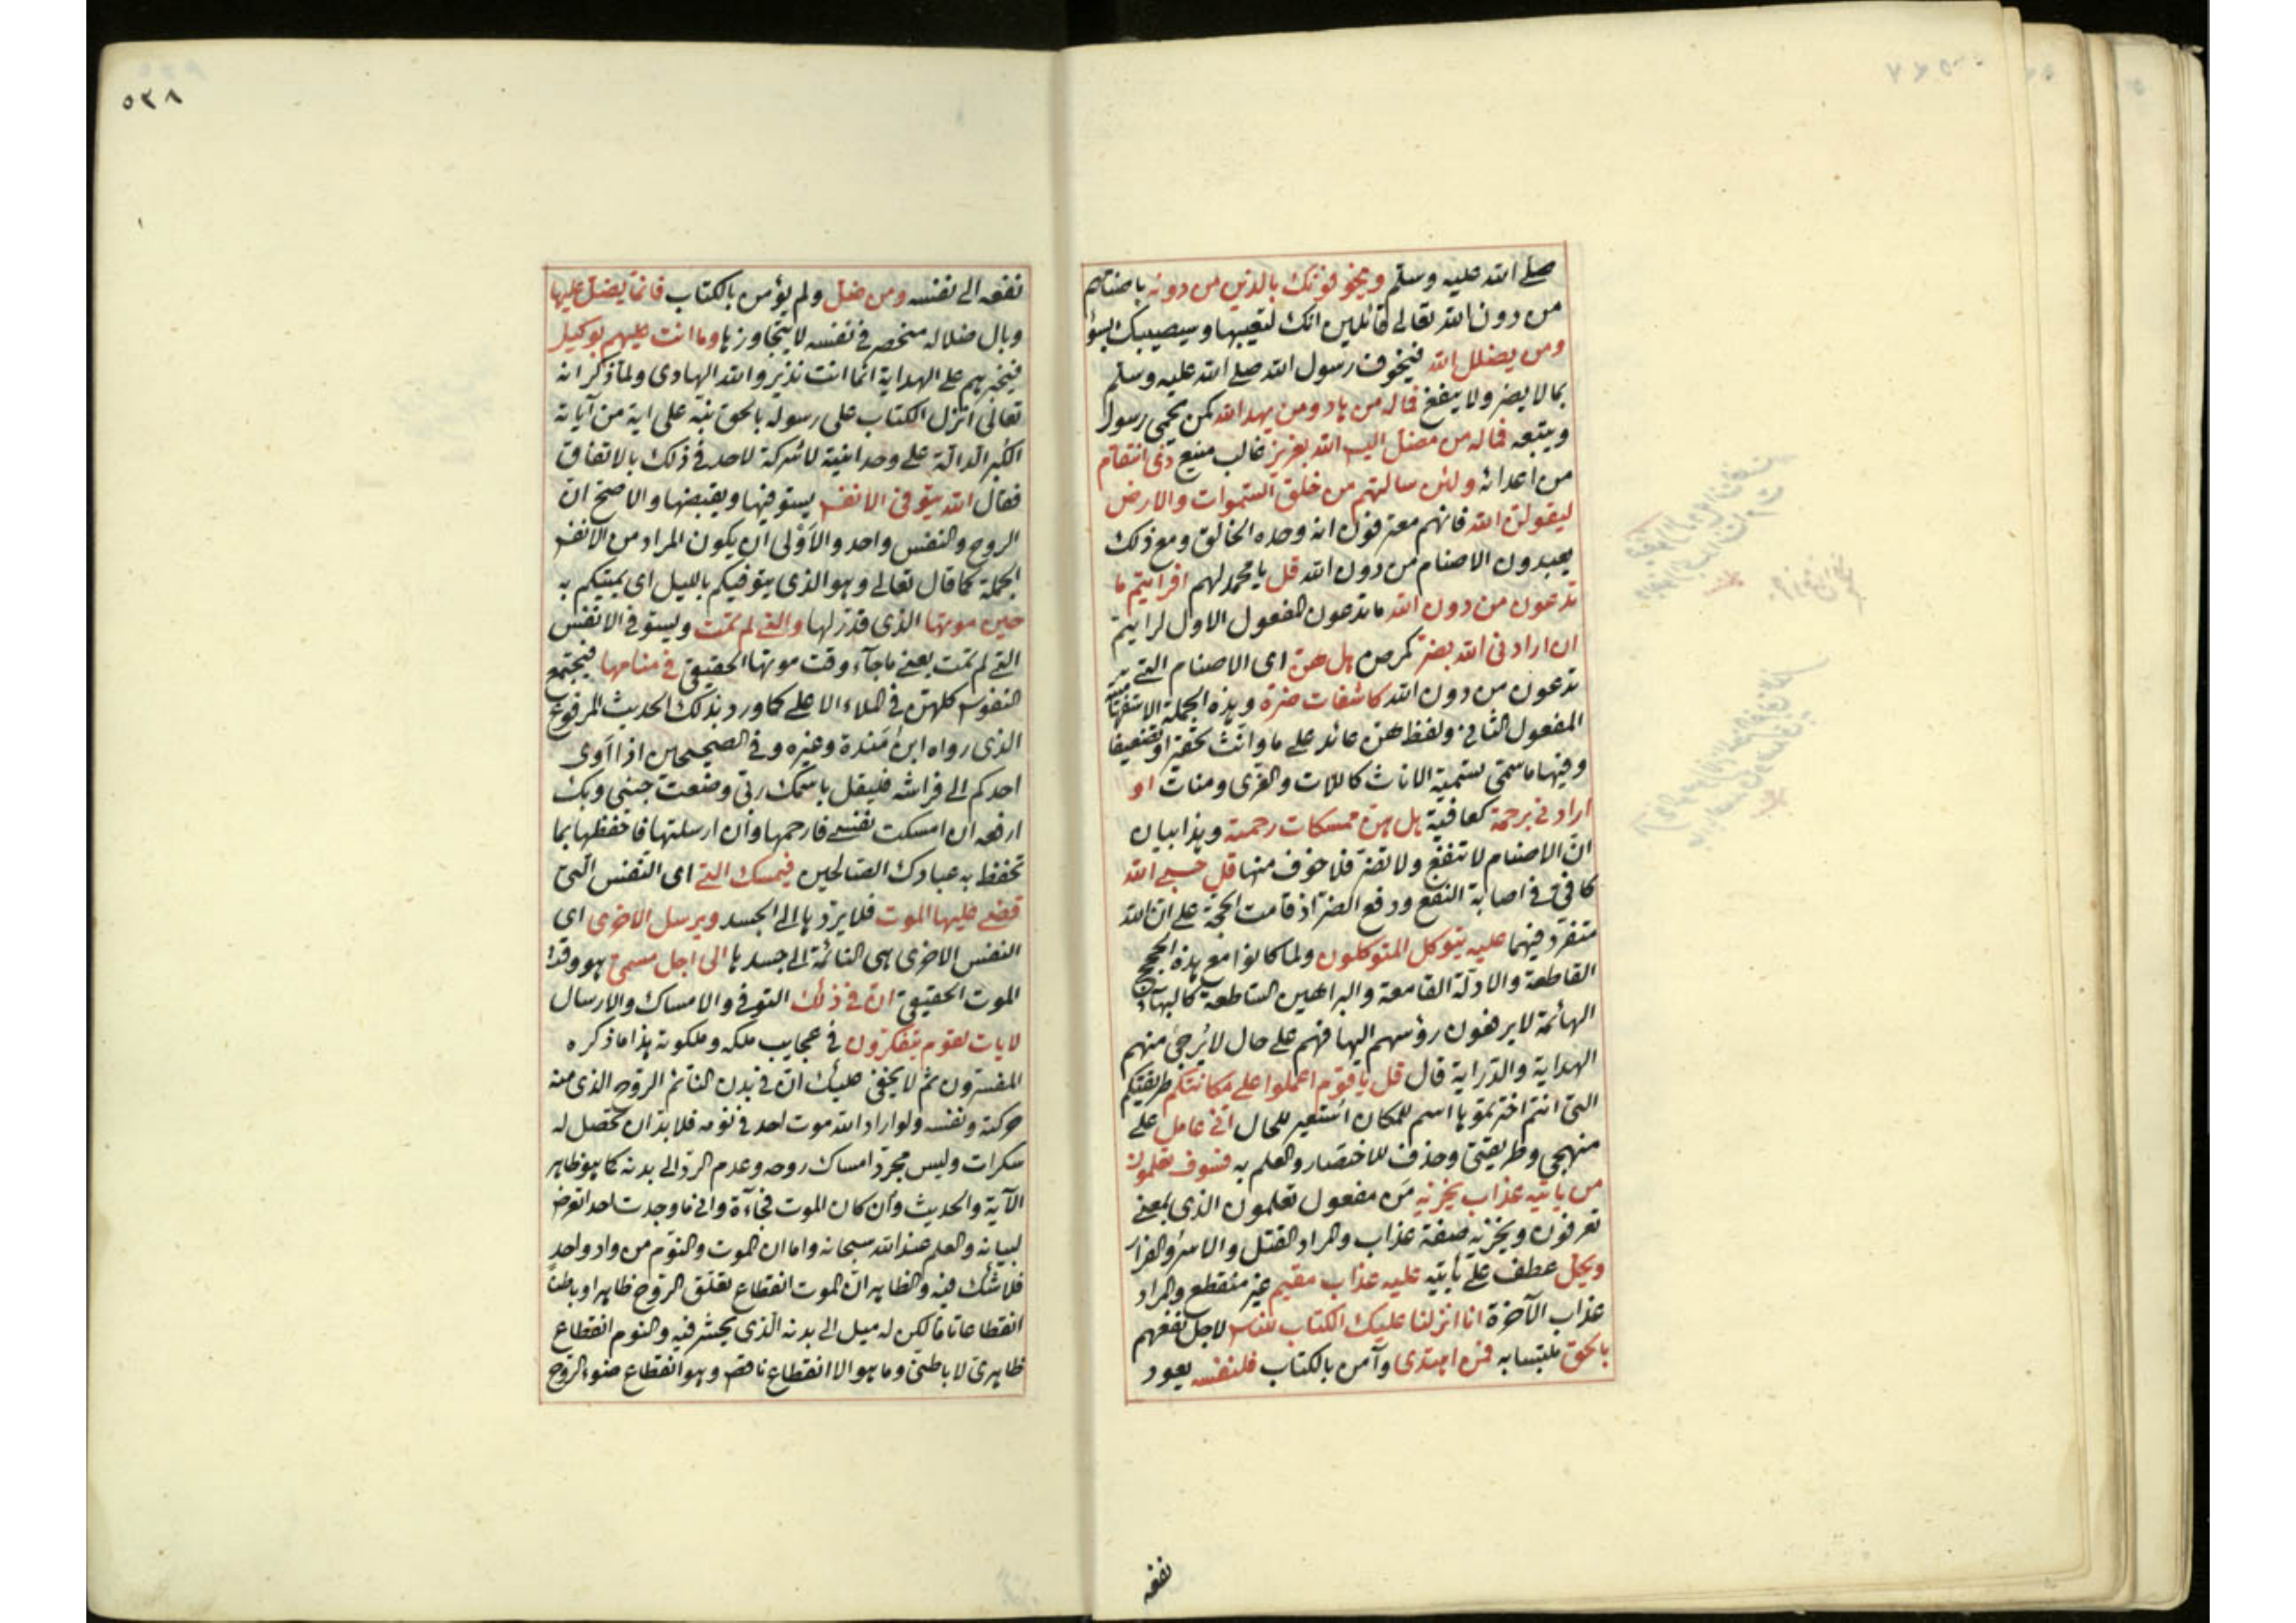 صلى الله عليه وسلم ويخوفونك بالذين من دونه باصنامهم
من دون الله تعالى قائلين انك لتعيبها وسيصيبك بسؤ
ومن يضلل الله فيخوف رسول الله صلے الله عليه وسلم
بما لا يضر ولا ينفع فماله من هاد ومن يهد الله كمن يحمي رسول
ويتبعه فماله من مضل اليس الله بعزيز غالب منيع ذى انتقام
من اعدائه ولئن سالتهم من خلق السموات والارض
ليقولن الله فانهم معترفون انه وحده الخالق ومع ذلك
يعبدون الاصنام من دون الله قل يا محمد لهم افرايتم ما
تدعون من دون الله ما تدعون المفعول الاول لرايتم
ان ارادنى الله بضر كمرض هل هن اى الاصنام التے
تدعون من دون الله كاشفات ضره وهذه الجملة الاستفهامية
المفعول الثانى ولفظ هن عائد على ما وانث تحقيرا وتضعيفا
وفيها ما سمى بتسمية الاناث كاللات والعزى ومنات او
ارادنى برحمة كعافية هل هن ممسكات رحمته وهذا بيان
ان الاصنام لا تنفع ولا تضر فلا خوف منها قل حسبے الله
كافىّ فى اصابة النفع ودفع الضر اذ قامت الحجة على ان الله
متفرد فيهما عليه يتوكل المتوكلون ولما كانوا مع هذه الحجج
القاطعة والادلة القامعة والبراهين الساطعة كالبهائم
الهائمة لا يرفعون رؤسهم اليها فهم على حال لا يُرجى منهم
الهداية والدراية قال قل يا قوم اعملوا على مكانتكم طريقتكم
التى انتم اخترتموها اسم للمكان استعير للحال انى عامل على
منهجى وطريقتى وحذف للاختصار والعلم به فسوف تعلمون
من ياتيه عذاب يخزيه مَن مفعول تعلمون الذى بمعنى
تعرفون ويخزيه صفة عذاب والمراد القتل والاسر والفرار
ويحل عطف على ياتيه عليه عذاب مقيم غير منقطع والمراد
عذاب الآخرة انا انزلنا عليك الكتاب للناس لاجل نفعهم
بالحق ملتبسا به فمن اهتدى وآمن بالكتاب فلنفسه يعود
نفعه
٥٣٨
نفعه الى نفسه ومن ضل ولم يؤمن بالكتاب فانما يضل عليها
وبال ضلاله منحصر فى نفسه لا يتجاوزها وما انت عليهم بوكيل
فيجبرهم على الهداية انما انت نذير والله الهادى ولما ذكر انه
تعالى انزل الكتاب على رسوله بالحق نبه على اية من آياته
الكبرى الدالة على وحدانية لا شركة لاحد فى ذلك بالاتفاق
فقال الله يتوفى الانفس يستوفيها ويقبضها والاصح ان
الروح والنفس واحد والاَوْلى ان يكون المراد من الانفس
الجملة كما قال تعالى وهو الذى يتوفيكم بالليل اى يميتكم به
حين موتها الذى قدّر لها والتے لم تمت ويستوفى الانفس
التے لم تمت يعنى ما جآء وقت موتها الحقيقى فى منامها فيجتمع
النفوس كلهن فى الملاء الاعلى كما ورد بذلك الحديث المرفوع
الذى رواه ابن مندة وغيره وفى الصحيحين اذا آوى
احدكم الى فراشه فليقل باسمك ربى وضعت جنبى وبك
ارفعه ان امسكت نفسى فارحمها وان ارسلتها فاحفظها بما
تحفظ به عبادك الصالحين فيمسك التے اى النفس التى
قضے عليها الموت فلا يردها الى الجسد ويرسل الاخرى اى
النفس الاخرى هى النائمة الى جسدها الى اجل مسمى هو وقت
الموت الحقيقى ان فى ذلك التوفى والامساك والارسال
لايات لقوم يتفكرون فى عجايب ملكه وملكوته هذا ما ذكره
المفسرون ثم لا يخفى عليك ان فى بدن النائم الروح الذى منه
حركته ونفسه ولو اراد الله موت احد فى نومه فلا بد ان تحصل له
سكرات وليس مجرد امساك روحه وعدم الرد الى بدنه كما هو ظاهر
الآية والحديث وان كان الموت فجاءة وانى ما وجدت احدا تعرض
لبيانه والعلم عند الله سبحانه واما ان الموت والنوم من واد واحد
فلا شك فيه والظاهر ان الموت انقطاع تعلق الروح ظاهرا وباطناً
انقطاعا تاما لكن له ميل الى بدنه الذى يحشر فيه والنوم انقطاع
ظاهرى لا باطنى وما هو الا انقطاع ناقص وهو انقطاع ضوء الروح